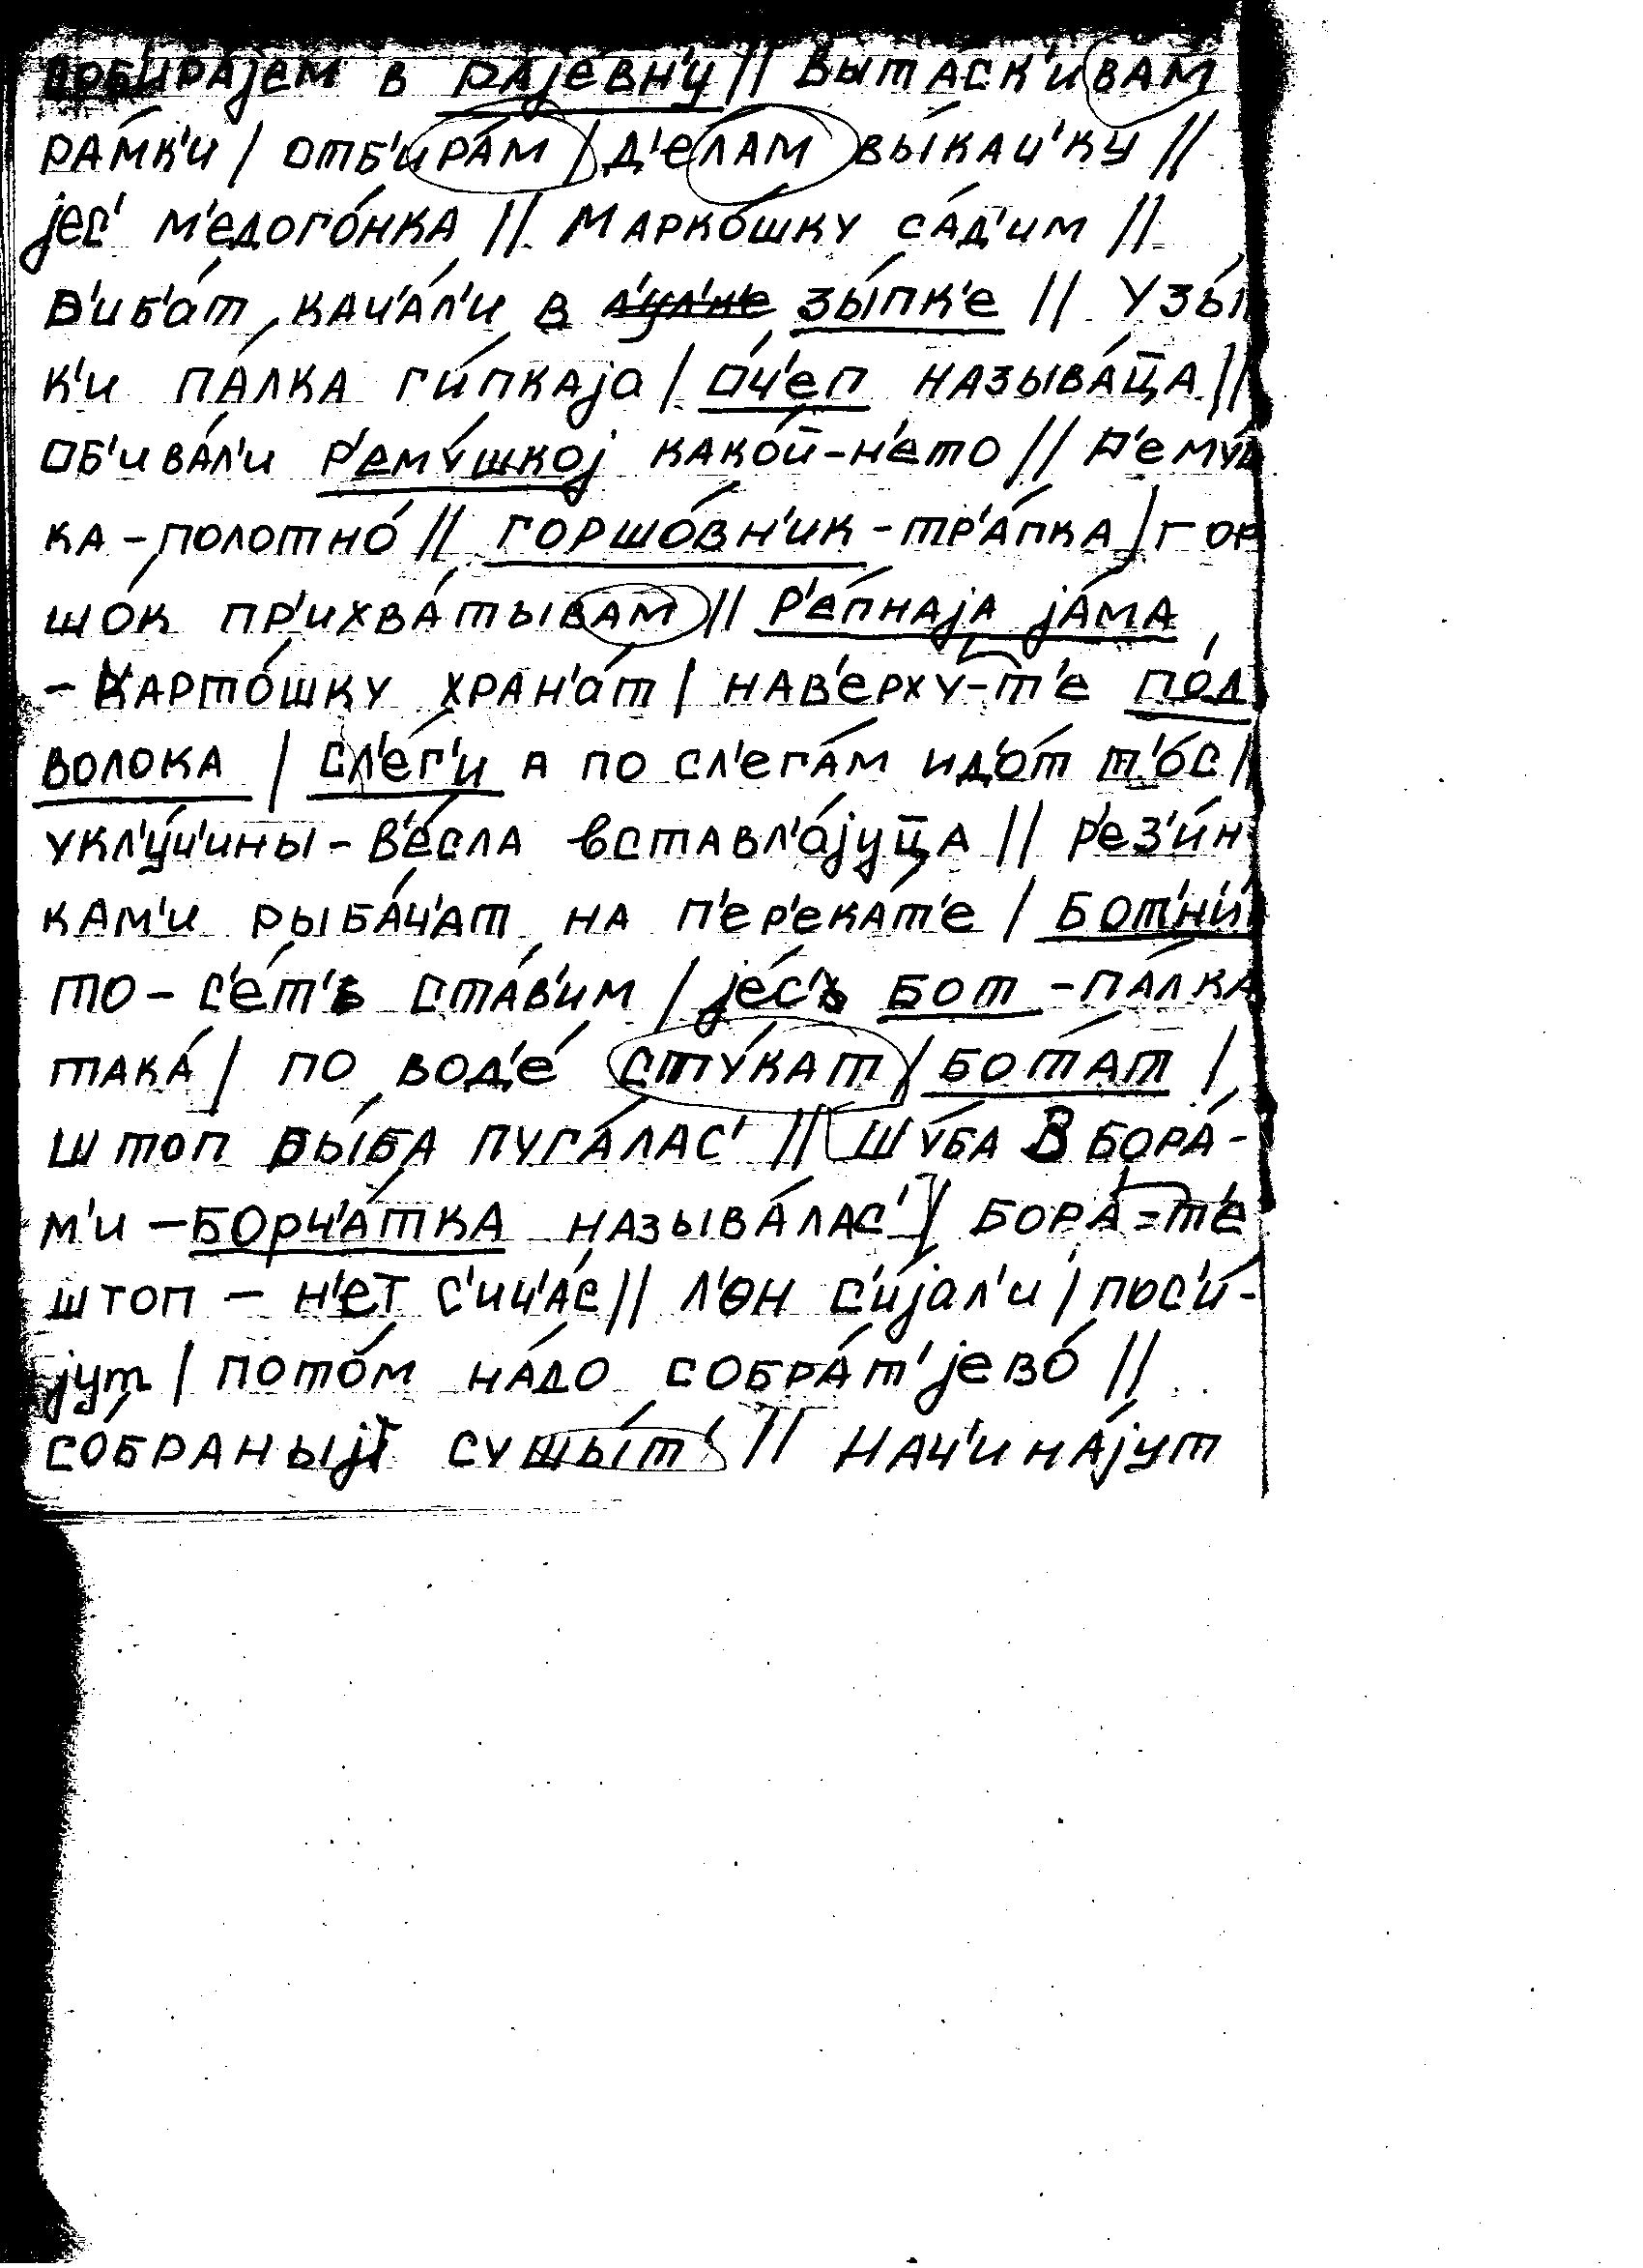 собирајем в рајéвн'у // Вытáск'ивам
рáмк'и / отб'ирáм / д'éлам вы́кач'ку //
јес' м'едогóнка // Маркóшку сáд'им //
Р'иб'áт кач'áл'и в зы́пк'е // У зы́п
к'и пáлка ги́пкаја / óч'еп называ́ц̄а //
об'ивáл'и р'ему́шкој какóй-н'ето // Р'ему́ш
ка - полотнó // горшóвн'ик - тр'áпка / гор
шóк пр'ихвáтывам // Р'éпнаја јáма
- Картóшку хран'áт / нав'ерху́-т'е пóд
волока / сл'éг'и а по сл'егáм ид'óт т'óс /
укл'у́ч'ины - в'óсла вставл'áјуц̄а // р'ез'и́н
кам'и рыбáч'ат на п'ер'екáт'е / Бот'н'и́
то - с'éт'ь стáв'им / јéс'ь бот - пáлка
такá / по вод'é сту́кат / ботáт /
штоп ры́ба пугáлас' // Шу́ба в борá-
м'и - борч'áтка называ́лас' / борá-т'е
штоп - н'ет с'ич'áс // Л'он с'и́јал'и / пос'и́-
јут / потóм нáдо собрáт' јевó //
сóбраныјі сушы́т' // Нач'инáјут